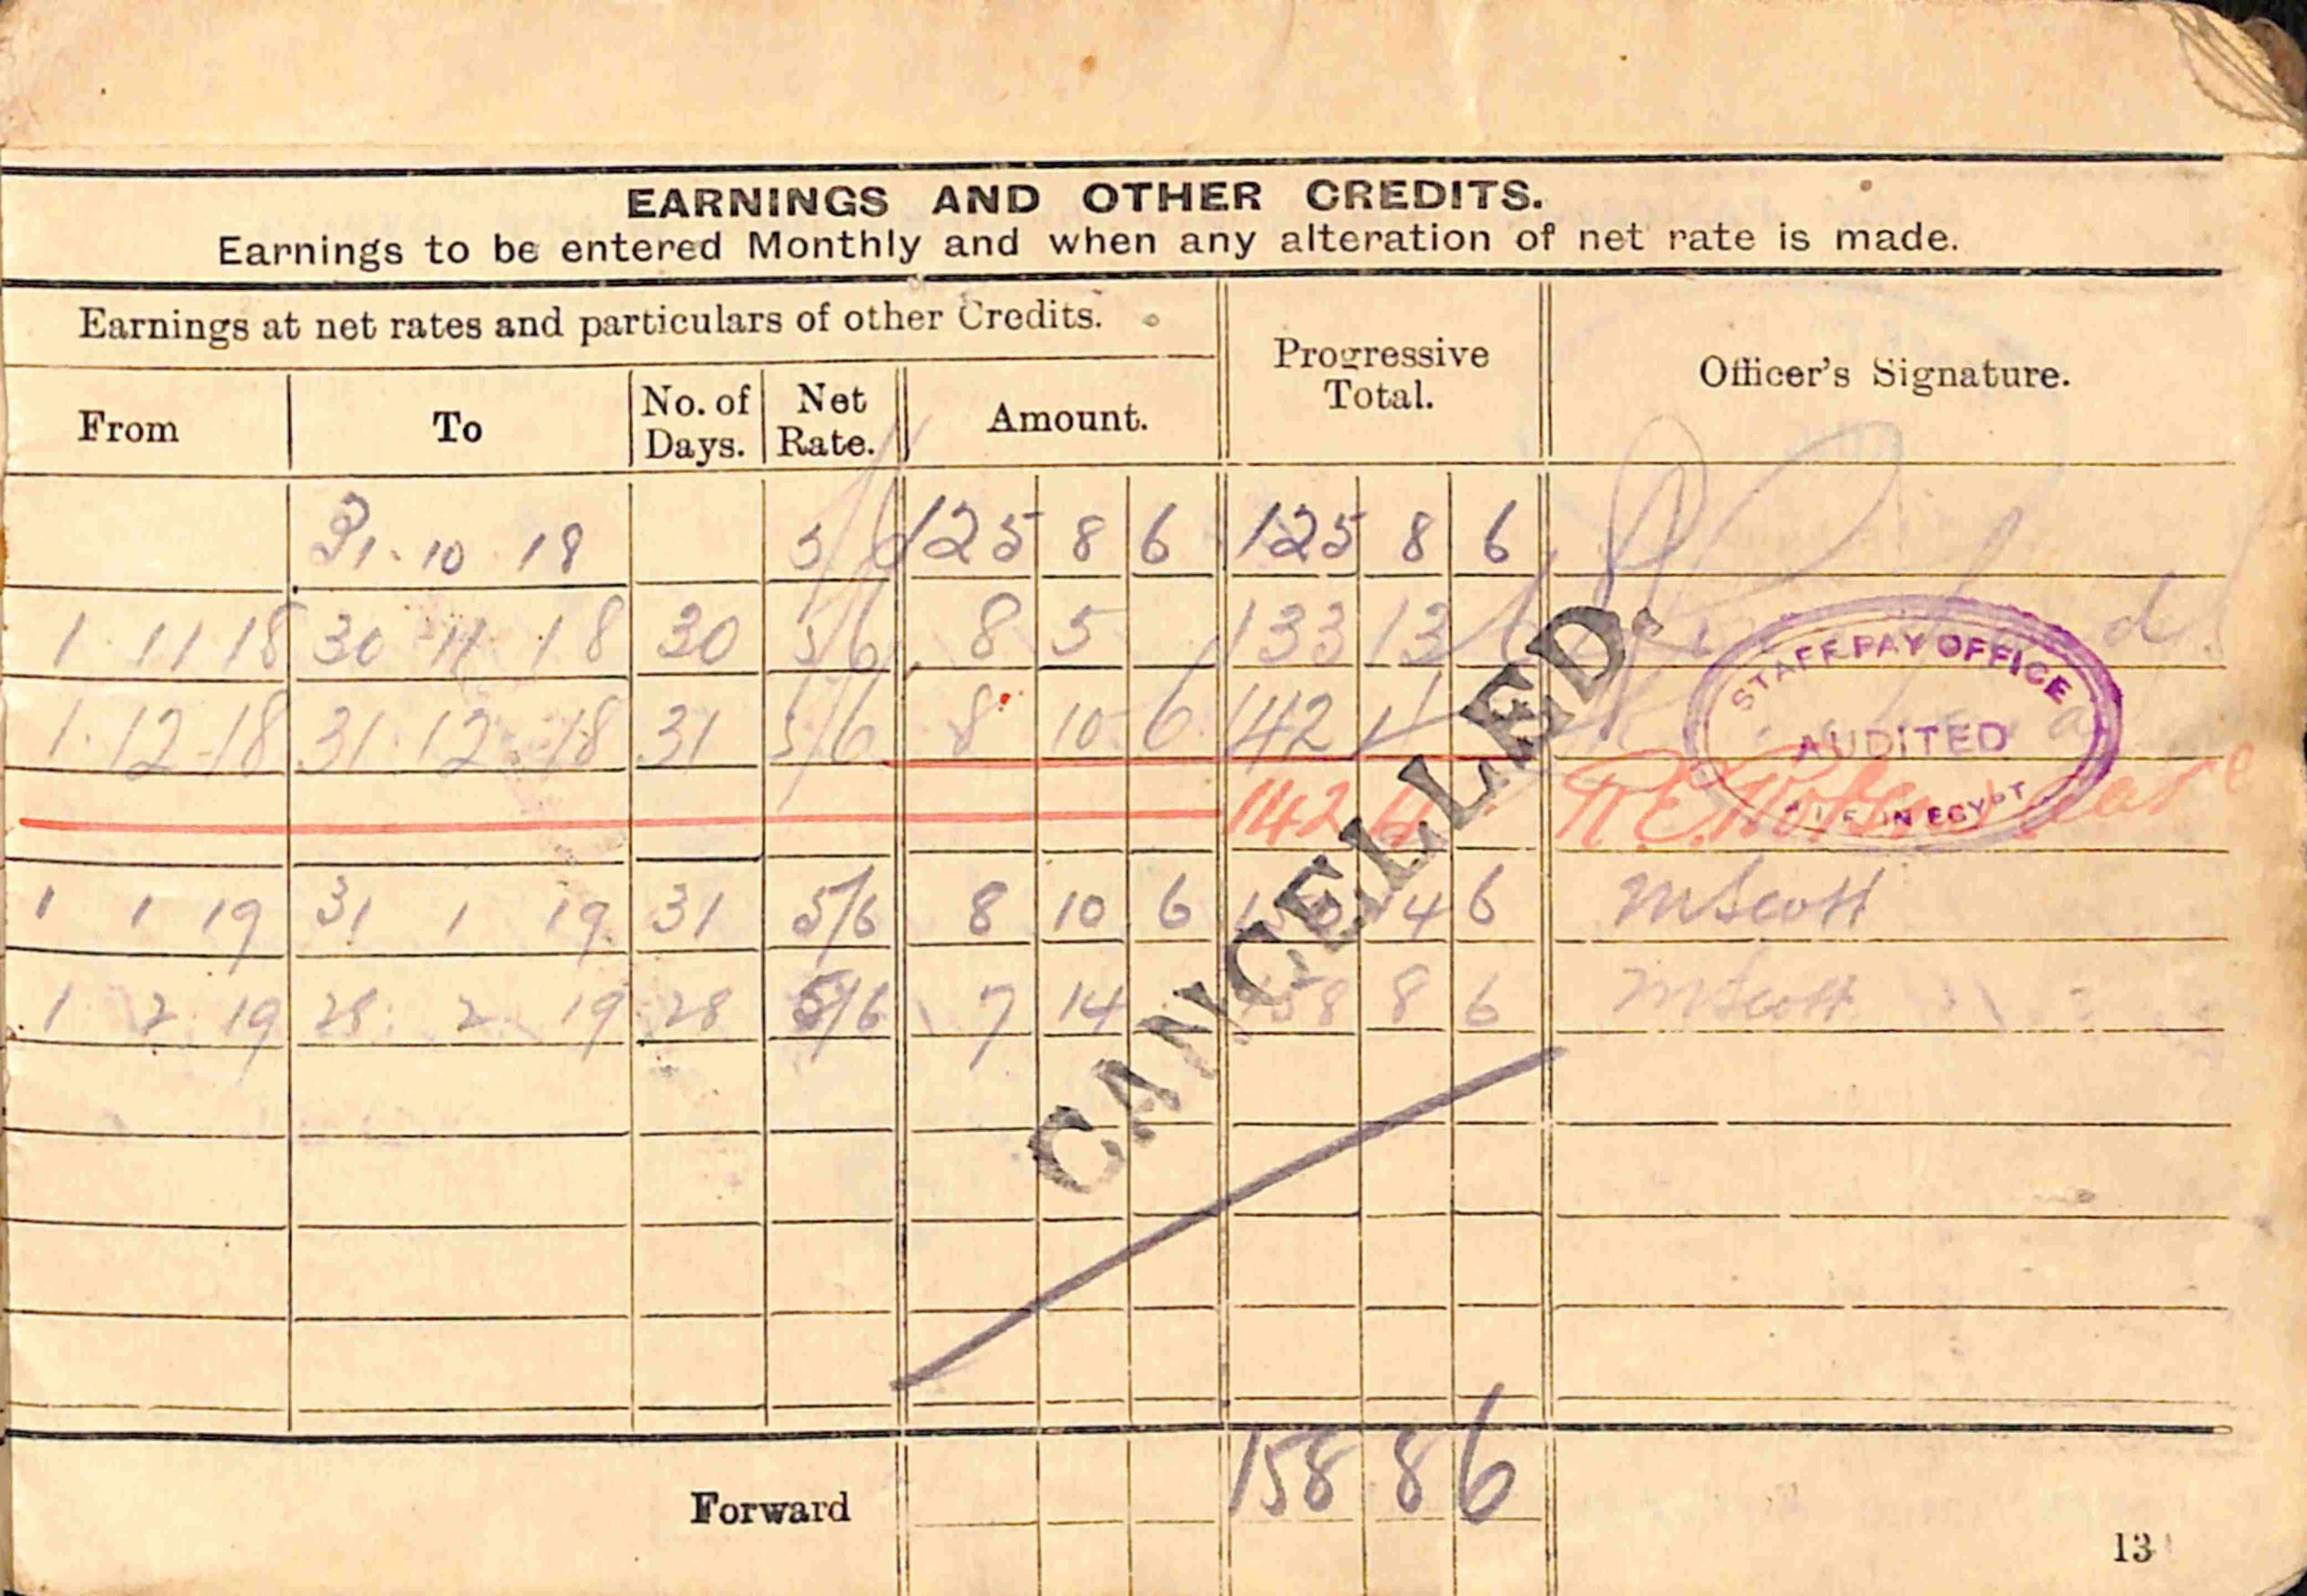 EARNINGS AND OTHER CREDITS.
Earnings to be entered Monthly and when any alteration of net rate is made.
Earnings at net rates and particulars of other Credits.
Progressive Total.
Officer's Signature.
From To No. of Days. Net Rate. Amount.
31. 10 18 5/6 125 8 6 125 8 6
1 11 18 30 11 18 30 5/6 8 5 133 13 6
1. 12 18 31. 12 18 31 5/6 8 10 6 142 4
142 4
1 1 19 31 1 19 31 5/6 8 10 6 14 6 MScott
1 2 19 28 2 19 28 5/6 7 14 158 8 6 MScott
STAFF PAY OFFICE
AUDITED
A.I.F. IN EGYPT
CANCELLED.
Forward 158 8 6
13